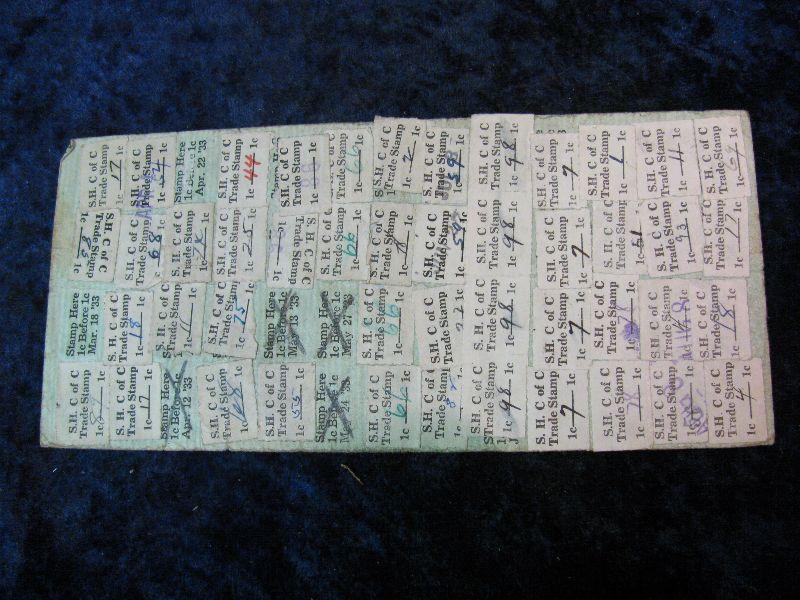 S.H. C of C
Trade Stamp
1c 1c
Stamp Here
1c Before 1c
Mar. 18 '33
S.H. C of C
Trade Stamp
1c 58 1c
S.H. C of C
Trade Stamp
1c 17 1c
S.H. C of C
Trade Stamp
1c 17 1c
S.H. C of C
Trade Stamp
1c 18 1c
S.H. C of C
Trade Stamp
1c 68 1c
S.H. C of C
Trade Stamp
1c 1c
Stamp Here
1c Before 1c
Apr. 12 '33
S.H. C of C
Trade Stamp
1c 11 1c
S.H. C of C
Trade Stamp
1c 1c
Stamp Here
1c Before 1c
Apr. 22 '33
S.H. C of C
Trade Stamp
1c 1c
S.H. C of C
Trade Stamp
1c 75 1c
S.H. C of C
Trade Stamp
1c 25 1c
S.H. C of C
Trade Stamp
1c 44 1c
S.H. C of C
Trade Stamp
1c 55 1c
Stamp Here
1c Before 1c
May 13 '33
S.H. C of C
Trade Stamp
1c 1c
S.H. C of C
Trade Stamp
1c 1c
Stamp Here
1c Before 1c
May 24 '33
Stamp Here
1c Before 1c
May 27 '33
S.H. C of C
Trade Stamp
1c 66 1c
S.H. C of C
Trade Stamp
1c 66 1c
S.H. C of C
Trade Stamp
1c 66 1c
S.H. C of C
Trade Stamp
1c 66 1c
S.H. C of C
Trade Stamp
1c 1c
S.H. C of C
Trade Stamp
1c 2 1c
S.H. C of C
Trade Stamp
1c 1c
S.H. C of C
Trade Stamp
1c 1c
S.H. C of C
Trade Stamp
1c 59 1c
S.H. C of C
Trade Stamp
1c 59 1c
S.H. C of C
Trade Stamp
1c 98 1c
S.H. C of C
Trade Stamp
1c 98 1c
S.H. C of C
Trade Stamp
1c 98 1c
S.H. C of C
Trade Stamp
1c 98 1c
S.H. C of C
Trade Stamp
1c 7 1c
S.H. C of C
Trade Stamp
1c 7 1c
S.H. C of C
Trade Stamp
1c 7 1c
S.H. C of C
Trade Stamp
1c 7 1c
S.H. C of C
Trade Stamp
1c 78 1c
S.H. C of C
Trade Stamp
1c 78 1c
S.H. C of C
Trade Stamp
1c 51 1c
S.H. C of C
Trade Stamp
1c 1 1c
S.H. C of C
Trade Stamp
1c 1c
S.H. C of C
Trade Stamp
1c 1c
S.H. C of C
Trade Stamp
1c 93 1c
S.H. C of C
Trade Stamp
1c 11 1c
S.H. C of C
Trade Stamp
1c 4 1c
S.H. C of C
Trade Stamp
1c 18 1c
S.H. C of C
Trade Stamp
1c 11 1c
S.H. C of C
Trade Stamp
1c 64 1c